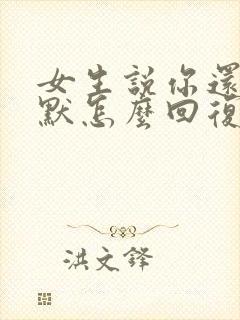 女生説你還
默怎麼回復
洪文鋒